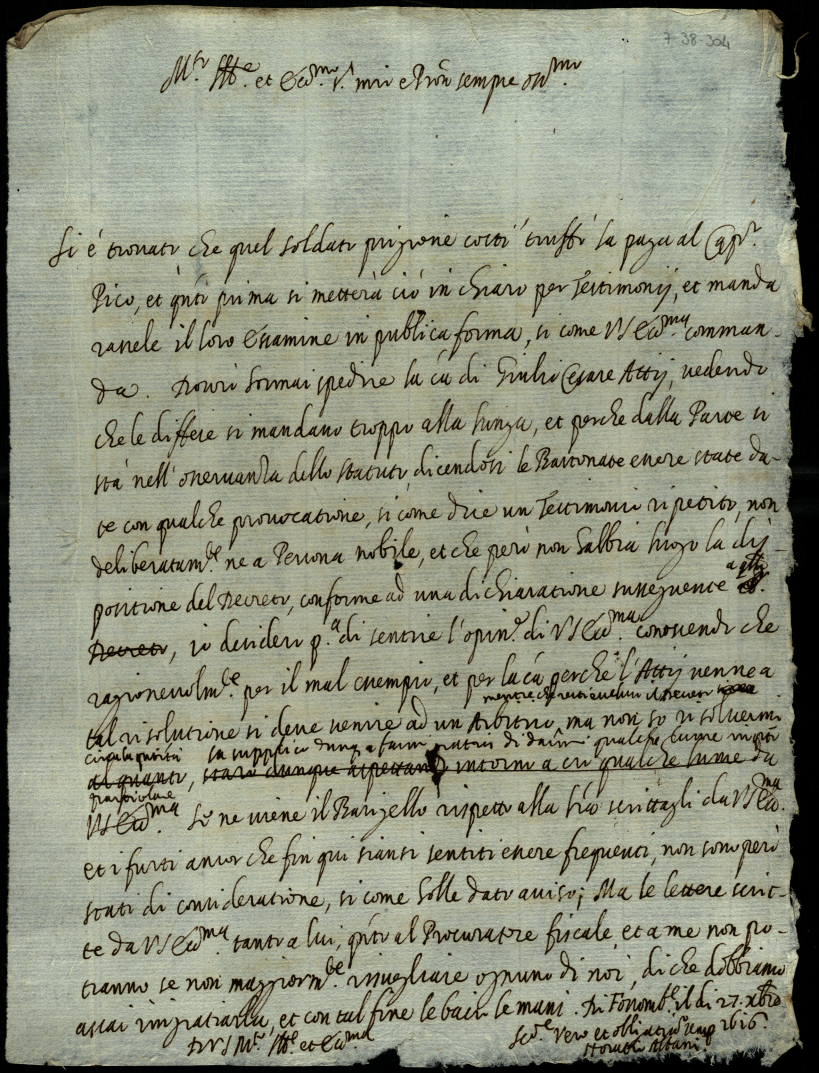 7-38-304
M.r Ill.e et Ecc.mo S.r mio e Pron sempre oss.mo
Si è trovato che quel soldato prigione costì truffò la paga al Cap.
Pico, et q.nto prima si metterà ciò in chiaro per Testimonij, et manda
ravele il loro Essamine in publica forma, si come VS Ecc.ma comman-
da. Dovrò hormai spedire la ca di Giulio Cesare Attij, vedendo
che le diffese si mandano troppo alla lunga, et perche dalla Parte si
stà nell'osservanza dello statuto, dicendosi le Bastonate essere state da-
te con qualche provocatione, si come dice un Testimonio ripetito, non
deliberatam.te ne a Persona nobile, et che però non habbia luogo la dis-
positione del Decreto, conforme ad una dichiaratione susseguente
Decreto, io desidero p.a di sentire l'opin.e di VS Ecc.ma conoscendo che
ragionevolm.te per il mal essempio, et per la ca perche l'Attij venne a
mentre che il Decreto
tal risolutione si deve venire ad un Arbitrio, ma non so risolvermi
circa la quantità la supplico dunq a farmi gratia di darmi qualche lume in q.to
al quanto, starò dunque aspettando intorno a ciò qualche lume da
particolare
VS Ecc.ma Se ne viene il Barigello rispetto alla l'ra scrittagli da VS Ecc.ma
et i furti ancor che fin qui siansi sentiti essere frequenti, non sono però
stati di consideratione, si come holle dato aviso; Ma le lettere scrit-
te da VS Ecc.ma tanto a lui, q.nto al Procuratore fiscale, et a me non po-
tranno se non maggiorm.te risvegliare ognuno di noi, di che dobbiamo
assai ringratiarla, et con tal fine le bacio le mani. Di Fossomb.e il di 27. xbre
1616.
Di VS M.r Ill.e et Ecc.ma
Ser.e vero et obligatiss.o
Horatio Albani